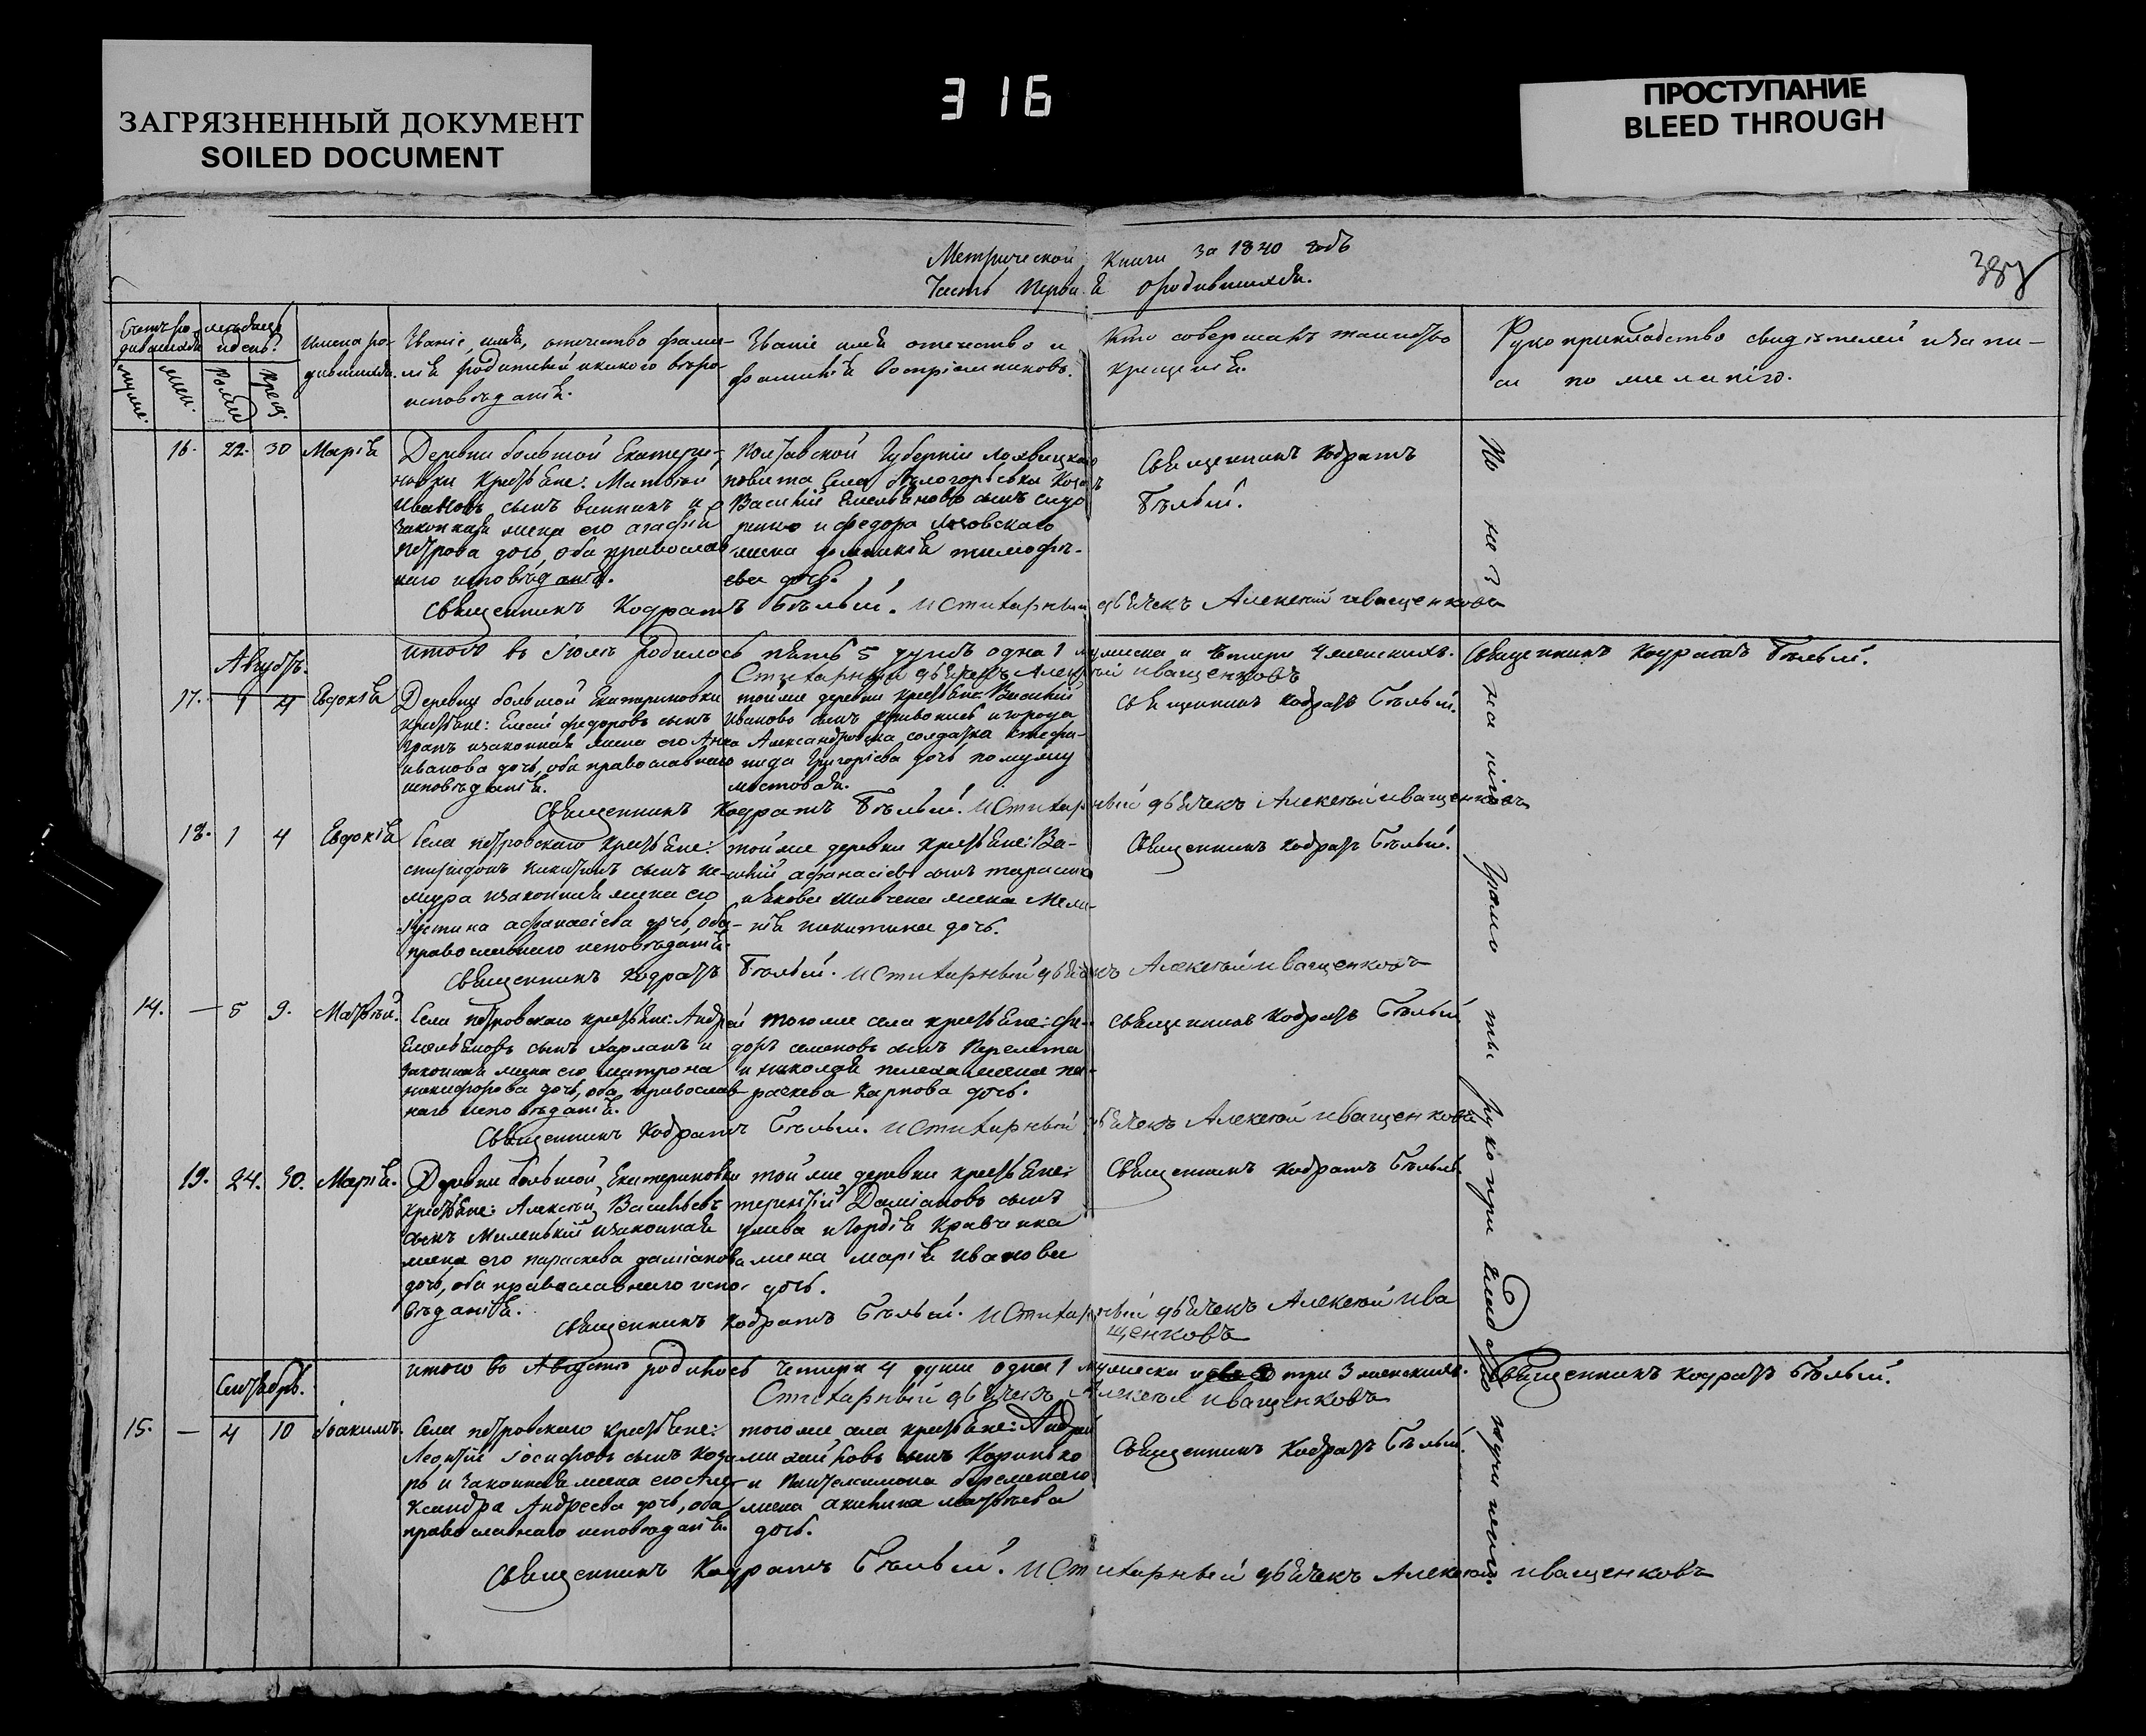 ЗАГРЯЗНЕННЫЙ ДОКУМЕНТ
SOILED DOCUMENT
316
ПРОСТУПАНИЕ
BLEED THROUGH
Метрической книги за 1840 годъ
Часть первая о родившихся.
Счетъ родившихся
муже.
жен.
месяцъ и день
рожд
крещ.
имена родившихся.
Званіе, имя, отечество фами-
лія родителей и какого веро-
исповѣданія.
Званіе имя отечество и
фамилія воспріемниковъ.
Кто совершалъ таинство
крещенія.
Рукоприкладство свидѣтелей иза пи-
си по желанію.
16. 22. 30 Марія
Деревни большой Екатери-
новки крестьяне: Матвѣй
Ивановъ сынъ винникъ и
законная жена его агафія
петрова дочь, оба православ
наго исповѣданія.
Полтавской Губерніи лохвицкаго
повита села бѣлогорѣлки
Василій Емельяновъ сынъ
и федора
жена тимофѣ-
ева дочь.
Священникъ Кодратъ
Бѣлый.
Священникъ Кодратъ Бѣлый. и Стихарный дьячекъ Алексѣй иващенковъ
итого въ іюлѣ родилось пять 5 душъ одна 1 мужеска и четыри 4 женскихъ. Священникъ Кодратъ Бѣлый.
Стихарный дьячекъ Алексѣй иващенковъ
Августъ.
17. 1 4 Евдокія
Деревни большой Екатериновки
крестьяне: Елисей федоровъ сынъ
и законная жена его Анна
иванова дочь, оба православнаго
исповѣданія.
тойже деревни крестьяне: Василій
Ивановъ сынъ и города
Александровска солдатка стефа-
нида Григоріева дочь по мужу
мостовая.
Священникъ Кодратъ Бѣлый.
Священникъ Кодратъ Бѣлый. и Стихарный дьячекъ Алексѣй иващенковъ
18. 1 4 Евдокія
Села петровскаго крестьяне:
спиридонъ никитинъ сынъ
и законная жена его
афанасіева дочь, оба
православнаго исповѣданія.
тойже деревни крестьяне: Ва-
силій афанасіевъ сынъ
жена Мела-
нія никитина дочь.
Священникъ Кодратъ Бѣлый.
Священникъ Кодратъ Бѣлый. и Стихарный дьячекъ Алексѣй иващенковъ
14. — 5 9. Матвѣй.
Села петровскаго крестьяне: Андрей
Емельяновъ сынъ харланъ и
законная жена его матрона
никифорова дочь, оба православ
наго исповѣданія.
тогоже села крестьяне: фе-
доръ семеновъ сынъ
и николая жена па-
раскева Карпова дочь.
Священникъ Кодратъ Бѣлый
Священникъ Кодратъ Бѣлый. и Стихарный дьячекъ Алексѣй иващенковъ
19. 24. 30. Марія.
Деревни большой Екатериновки
крестьяне: Алексѣй Васильевъ
сынъ Миленькій и законная
жена его параскева даміанова
дочь, оба православнаго испо-
вѣданія.
тойже деревни крестьяне:
терентій Даміановъ сынъ
и Гордія Кравченка
жена марія Иванова
дочь.
Священникъ Кодратъ Бѣлый.
Священникъ Кодратъ Бѣлый. и Стихарный дьячекъ Алексѣй ива
щенковъ
итого въ Августѣ родилось четыри 4 души одна 1 мужеска и три 3 женскихъ. Священникъ Кодратъ Бѣлый.
Стихарный дьячекъ Алексѣй иващенковъ
Сентябрь.
15. — 4 10 Іоакимъ.
Села петровскаго крестьяне:
Леонтій Іосифовъ сынъ
и законная жена его Але-
ксандра Андреева дочь, оба
православнаго исповѣданія.
тогоже села крестьяне: Андрей
михайловъ сынъ
и Пантелимона
жена акилина матвѣева
дочь.
Священникъ Кодратъ Бѣлый.
Священникъ Кодратъ Бѣлый. и Стихарный дьячекъ Алексѣй иващенковъ
По не знанію грамоты рукоприкладство неучинено.